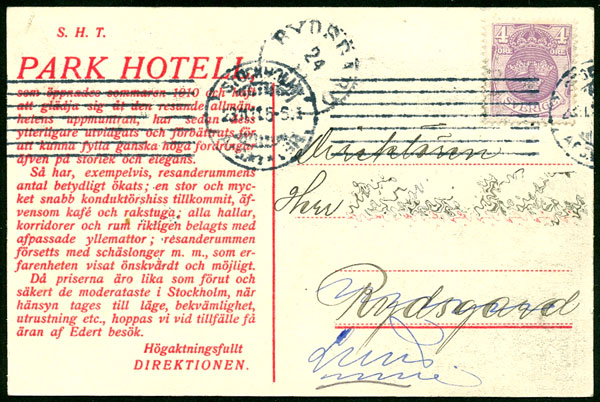 S. H. T.
PARK HOTELL,
som öppnades sommaren 1910 och haft
att glädja sig åt den resande allmän-
hetens uppmuntran, har sedan dess
ytterligare utvidgats och förbättrats för
att kunna fylla ganska höga fordringar
äfven på storlek och elegans.
Så har, exempelvis, resanderummens
antal betydligt ökats; en stor och myc-
ket snabb konduktörshiss tillkommit, äf-
vensom kafé och rakstuga; alla hallar,
korridorer och rum rikligen belagts med
afpassade yllemattor; resanderummen
försetts med schäslonger m. m., som er-
farenheten visat önskvärdt och möjligt.
Då priserna äro lika som förut och
säkert de moderataste i Stockholm, när
hänsyn tages till läge, bekvämlighet,
utrustning etc., hoppas vi vid tillfälle få
äran af Edert besök.
Högaktningsfullt
DIREKTIONEN.
24
4 4
ÖRE ÖRE
SVERIGE
Direktören
Herr
Rydsgård
Lund